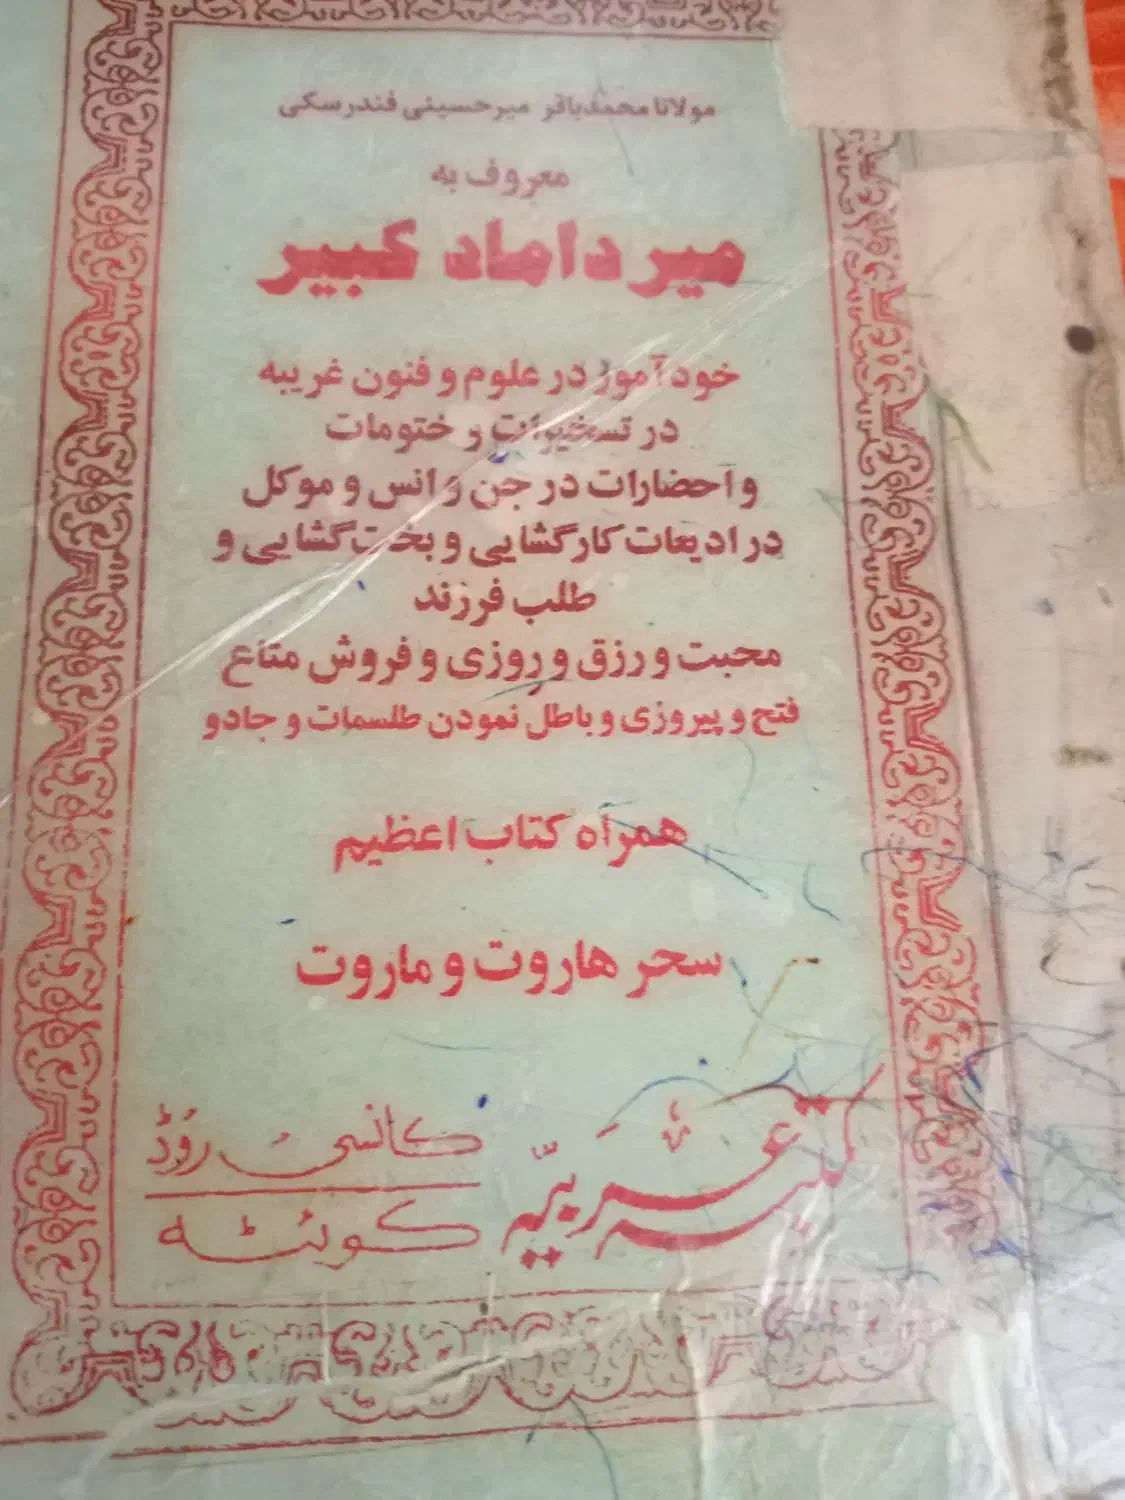 مولانا محمدباقر میرحسینی فندرسکی
معروف به
میر داماد کبیر
خودآموز در علوم و فنون غریبه
در تسخیرات و ختومات
و احضارات در جن و انس و موکل
در ادیعات کارگشایی و بخت‌گشایی و
طلب فرزند
محبت و رزق و روزی و فروش متاع
فتح و پیروزی و باطل نمودن طلسمات و جادو
همراه کتاب اعظیم
سحر هاروت و ماروت
مکتبه عربیّه
کانسی رُوڈ
کوئٹہ